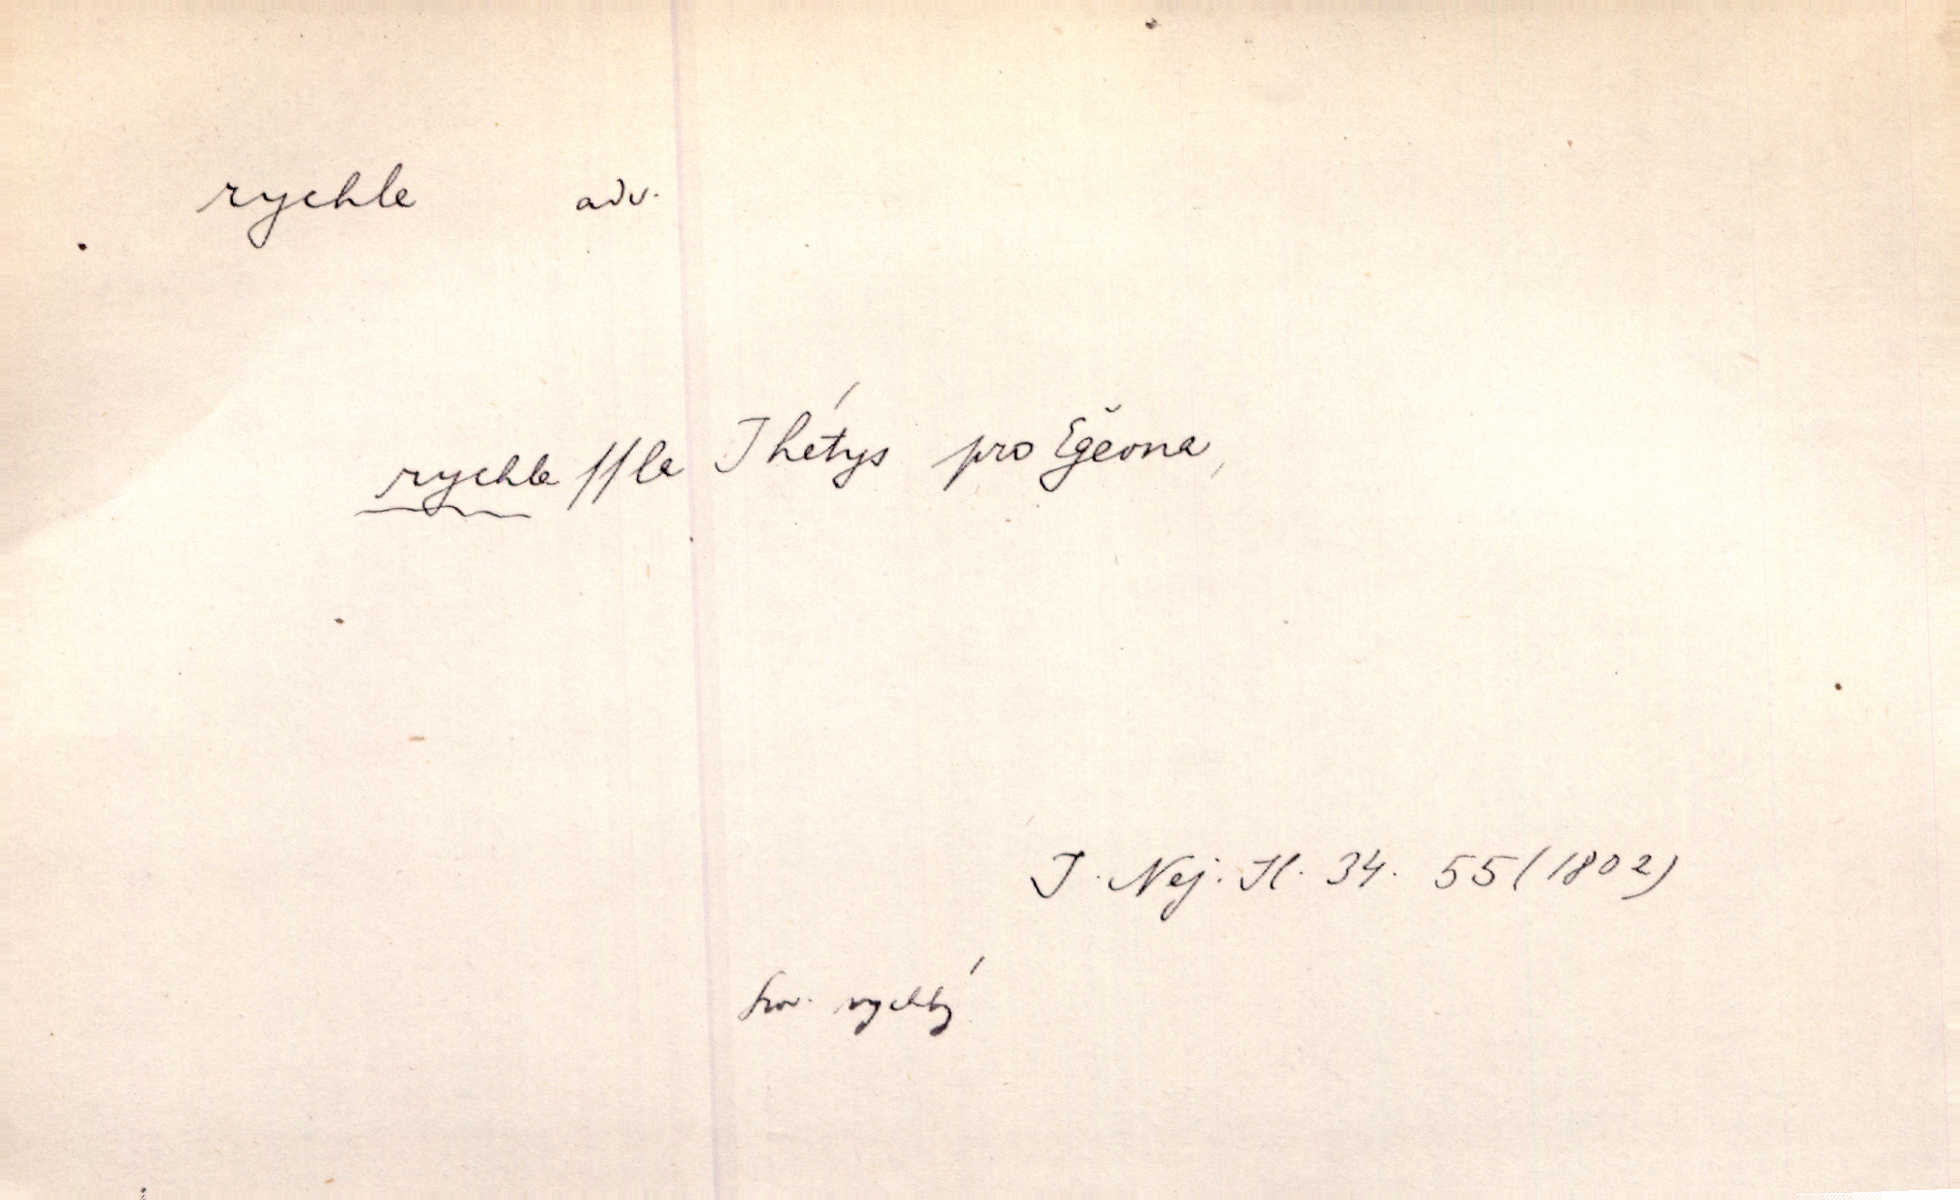 rychle adv.
rychle ſſla Thétys pro Egěona,
J. Nej. Il. 34. 55 (1802)
srov. rychlý